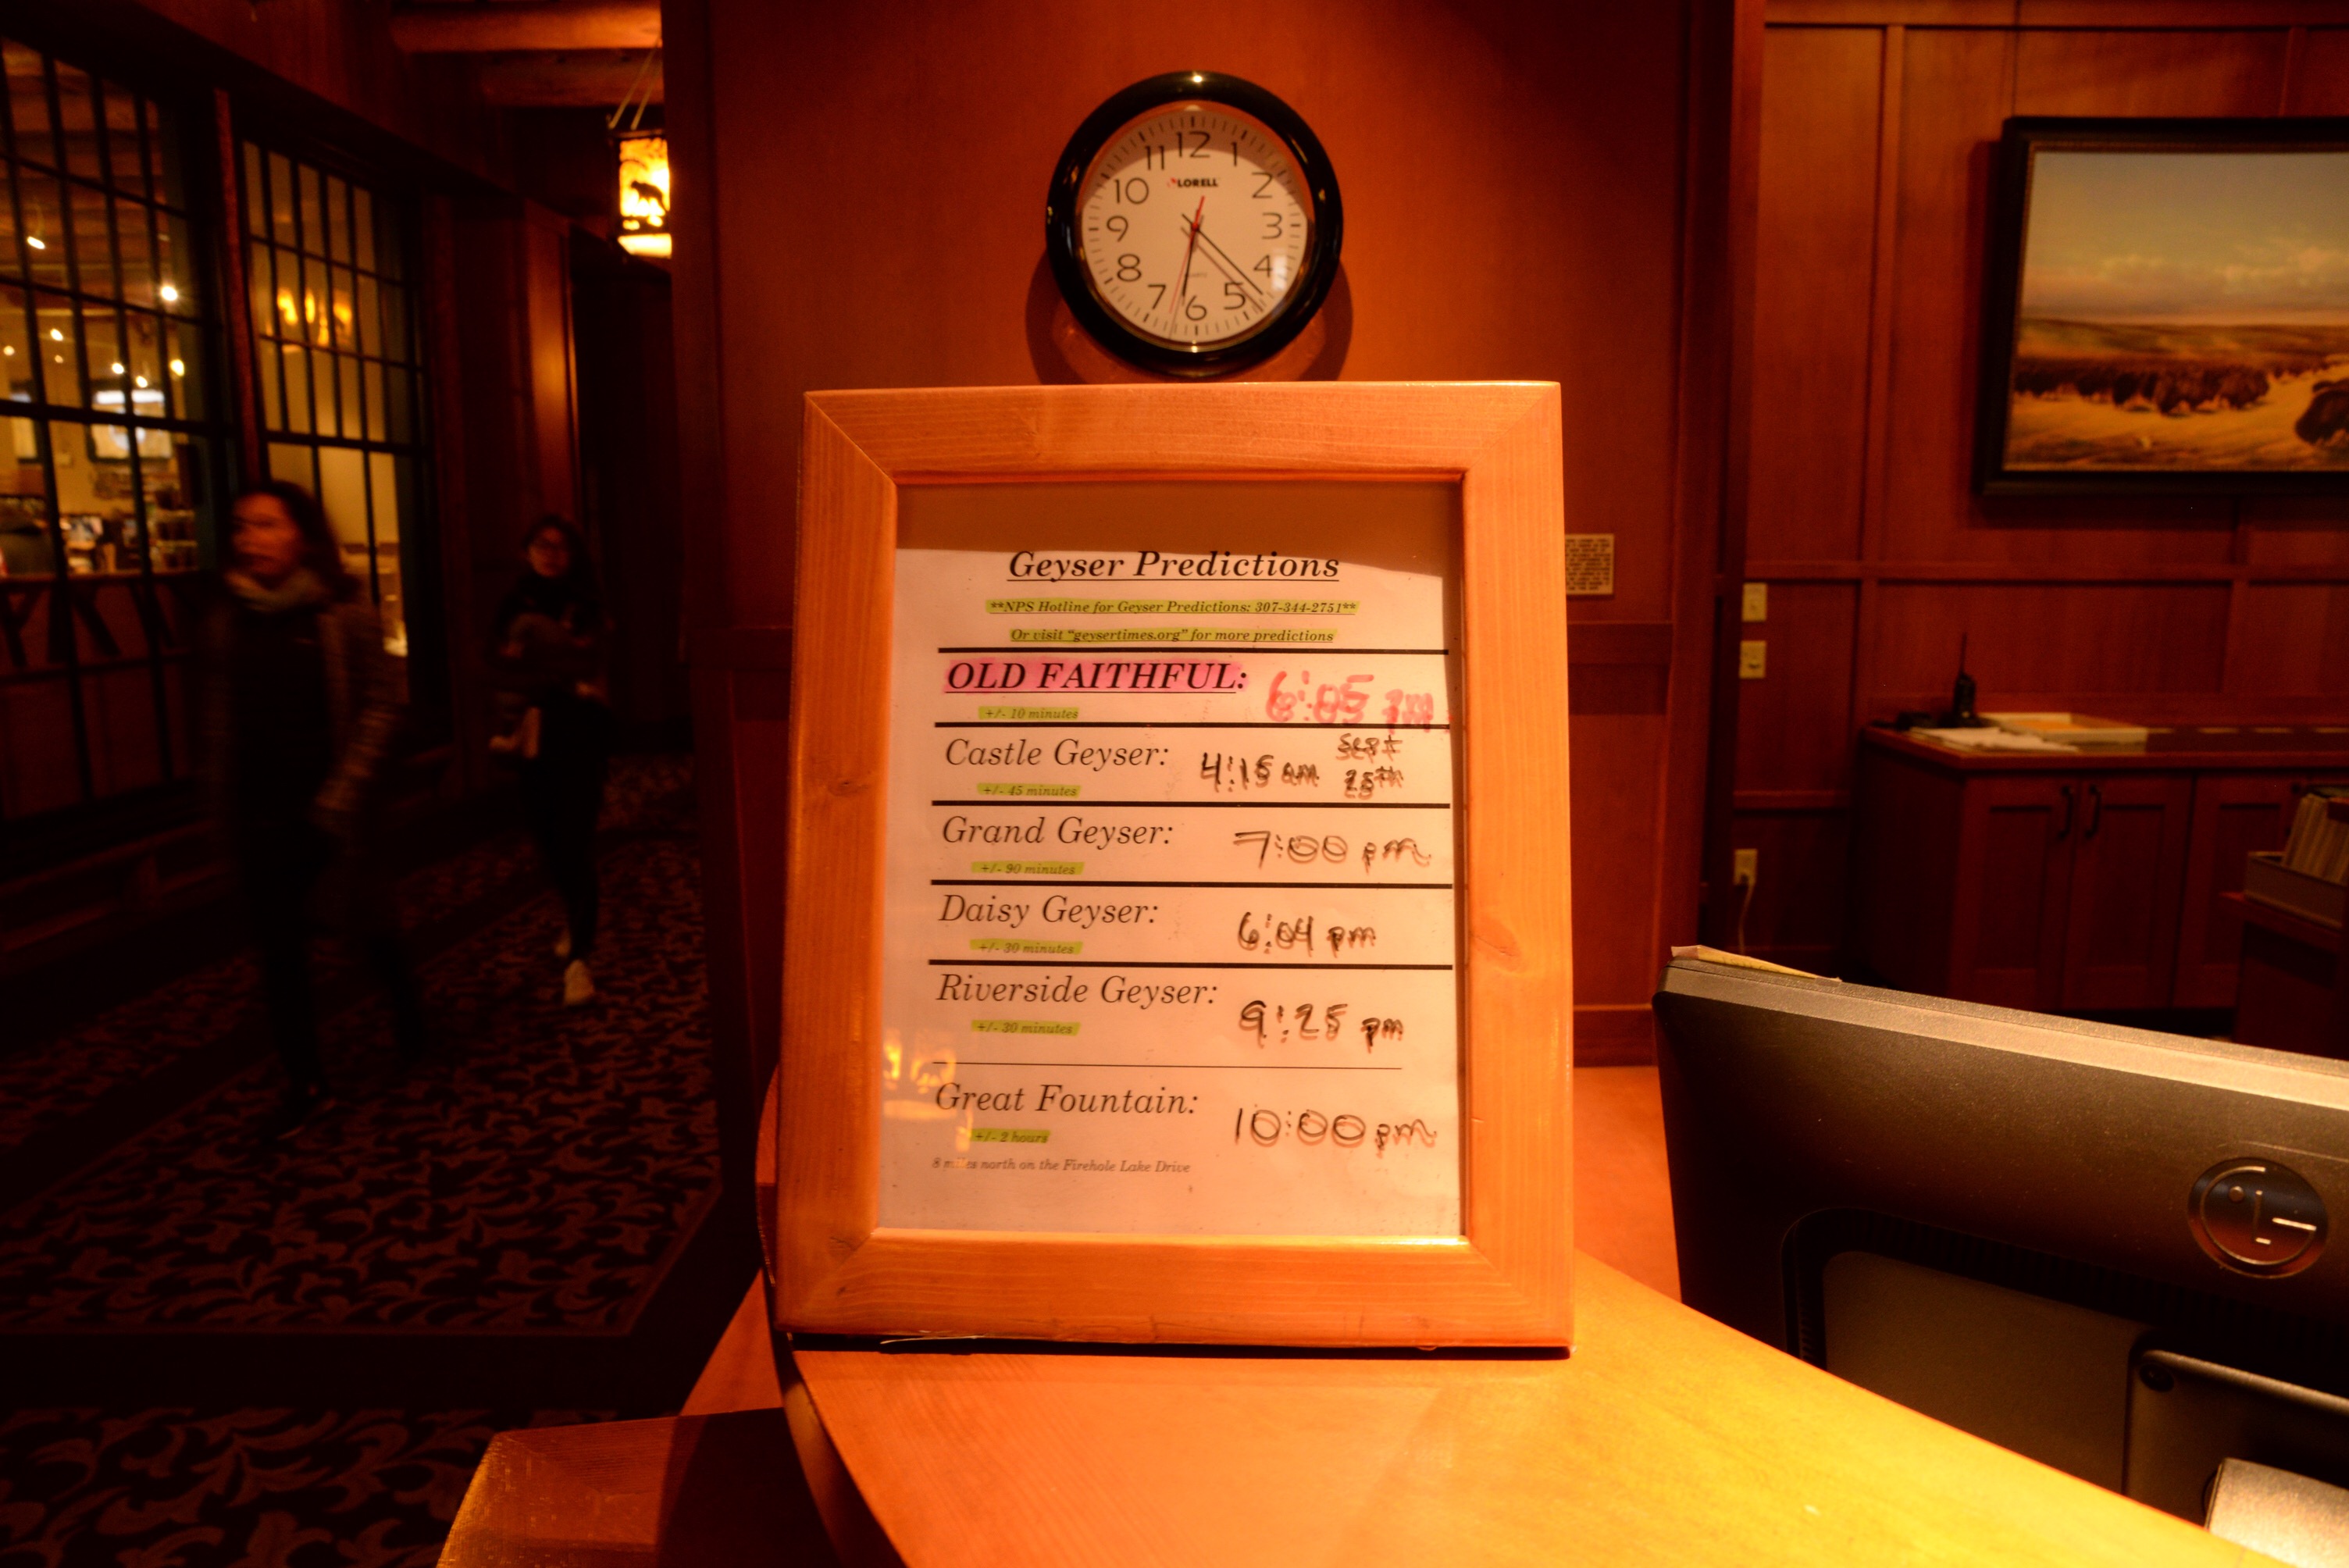 12
11 1
LORELL
10 2
9 3
8 4
QUARTZ
7 5
6
Geyser Predictions
**NPS Hotline for Geyser Predictions: 307-344-2751**
Or visit "geysertimes.org" for more predictions
OLD FAITHFUL: 6:05 pm
+/- 10 minutes
Castle Geyser: 4:15 am Sept 25th
+/- 45 minutes
Grand Geyser: 7:00 pm
+/- 90 minutes
Daisy Geyser: 6:04 pm
+/- 30 minutes
Riverside Geyser: 9:25 pm
+/- 30 minutes
Great Fountain: 10:00 pm
+/- 2 hours
8 miles north on the Firehole Lake Drive